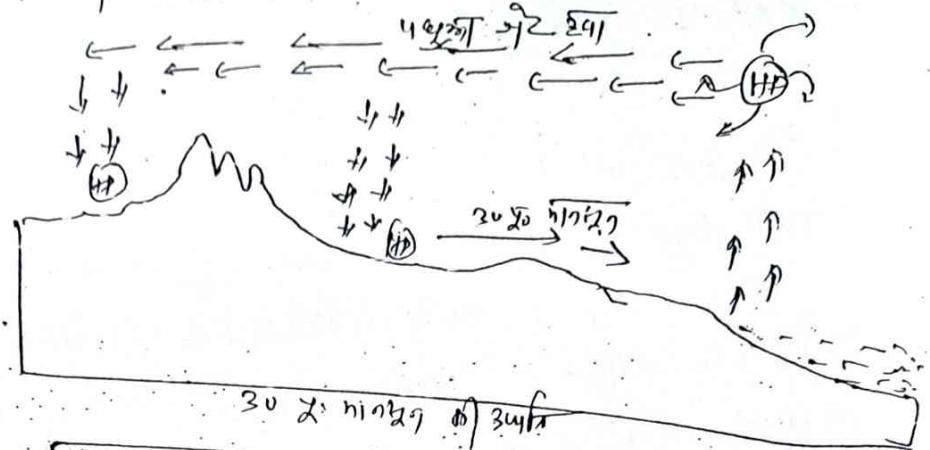 पछुआ जेट हवा
HP
HP
HP
उ० पू० मानसून
उ० पू० मानसून की उत्पत्ति